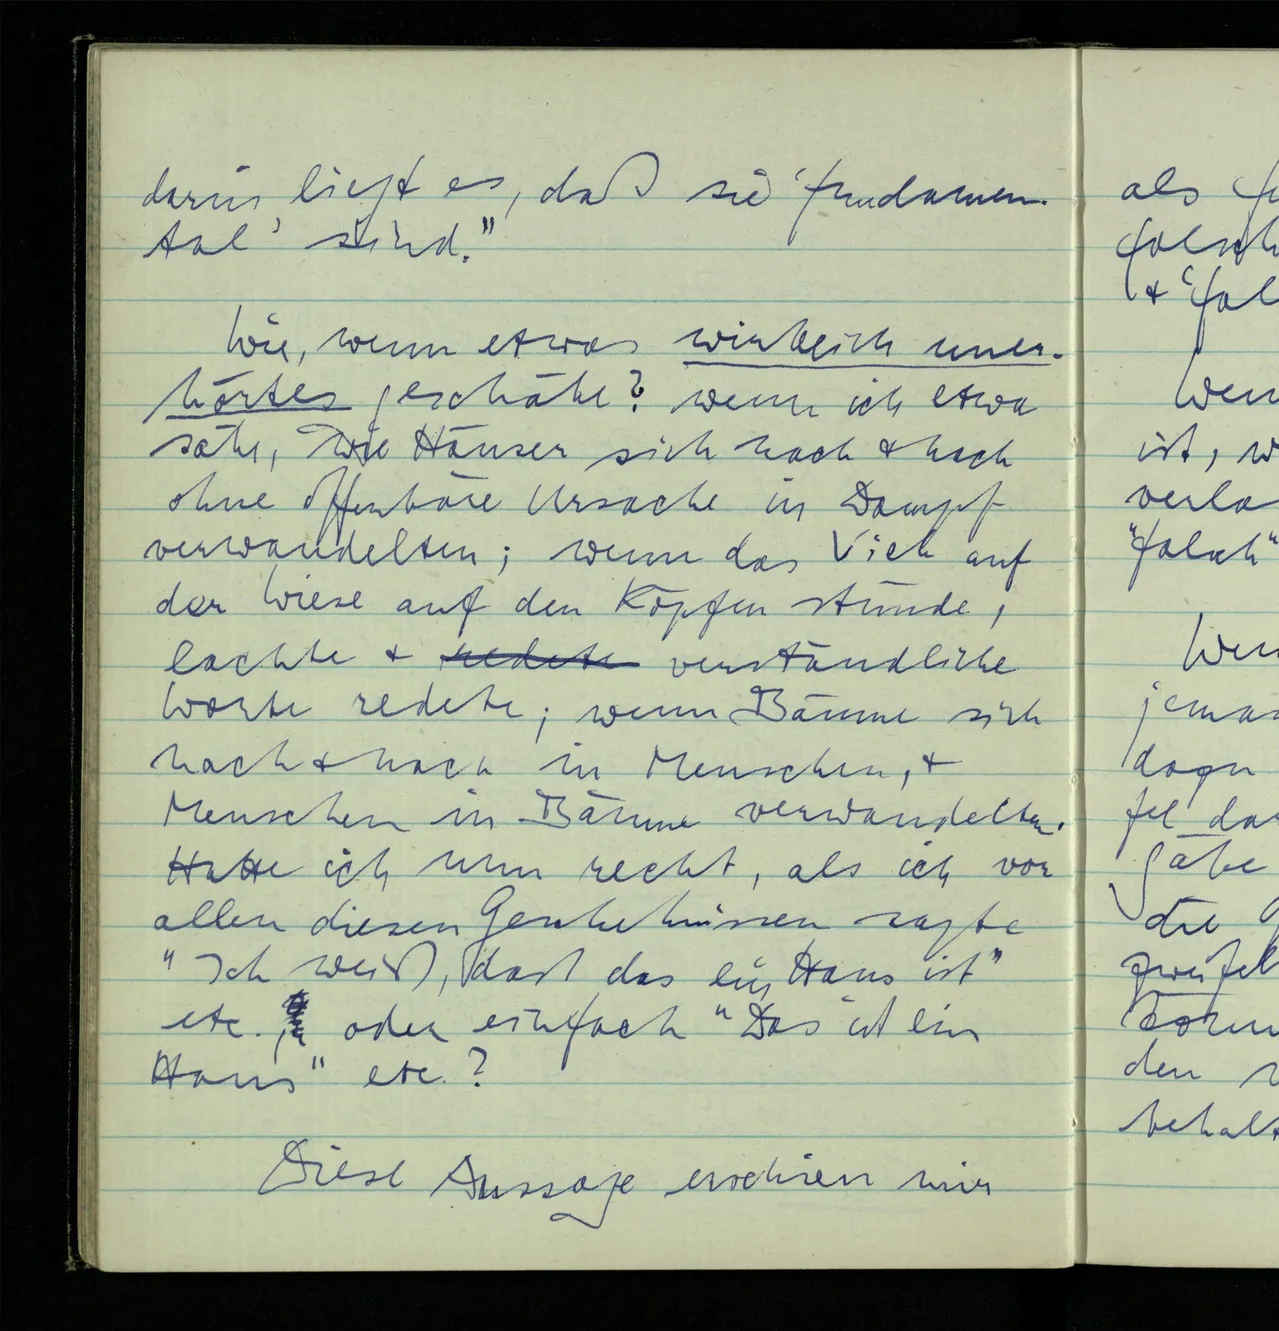 darin liegt es, daß sie 'fundamen-
tal' sind."
Wie, wenn etwas wirklich uner-
hörtes geschähe? wenn ich etwa
sähe, wie Häuser sich nach & nach
ohne offenbare Ursache in Dampf
verwandelten; wenn das Vieh auf
der Wiese auf den Köpfen stünde,
lachte & redete verständliche
Worte redete; wenn Bäume sich
nach & nach in Menschen, &
Menschen in Bäume verwandelten.
Hatte ich nun recht, als ich vor
allen diesen Geschehnissen sagte
"Ich weiß, daß das ein Haus ist"
etc., oder einfach "Das ist ein
Haus" etc.?
Diese Aussage erschien mir
als
&
ist, w
verla
"falsch"
jeman
dagu
fel dar
gäbe
die G
zweifel
den
behalt